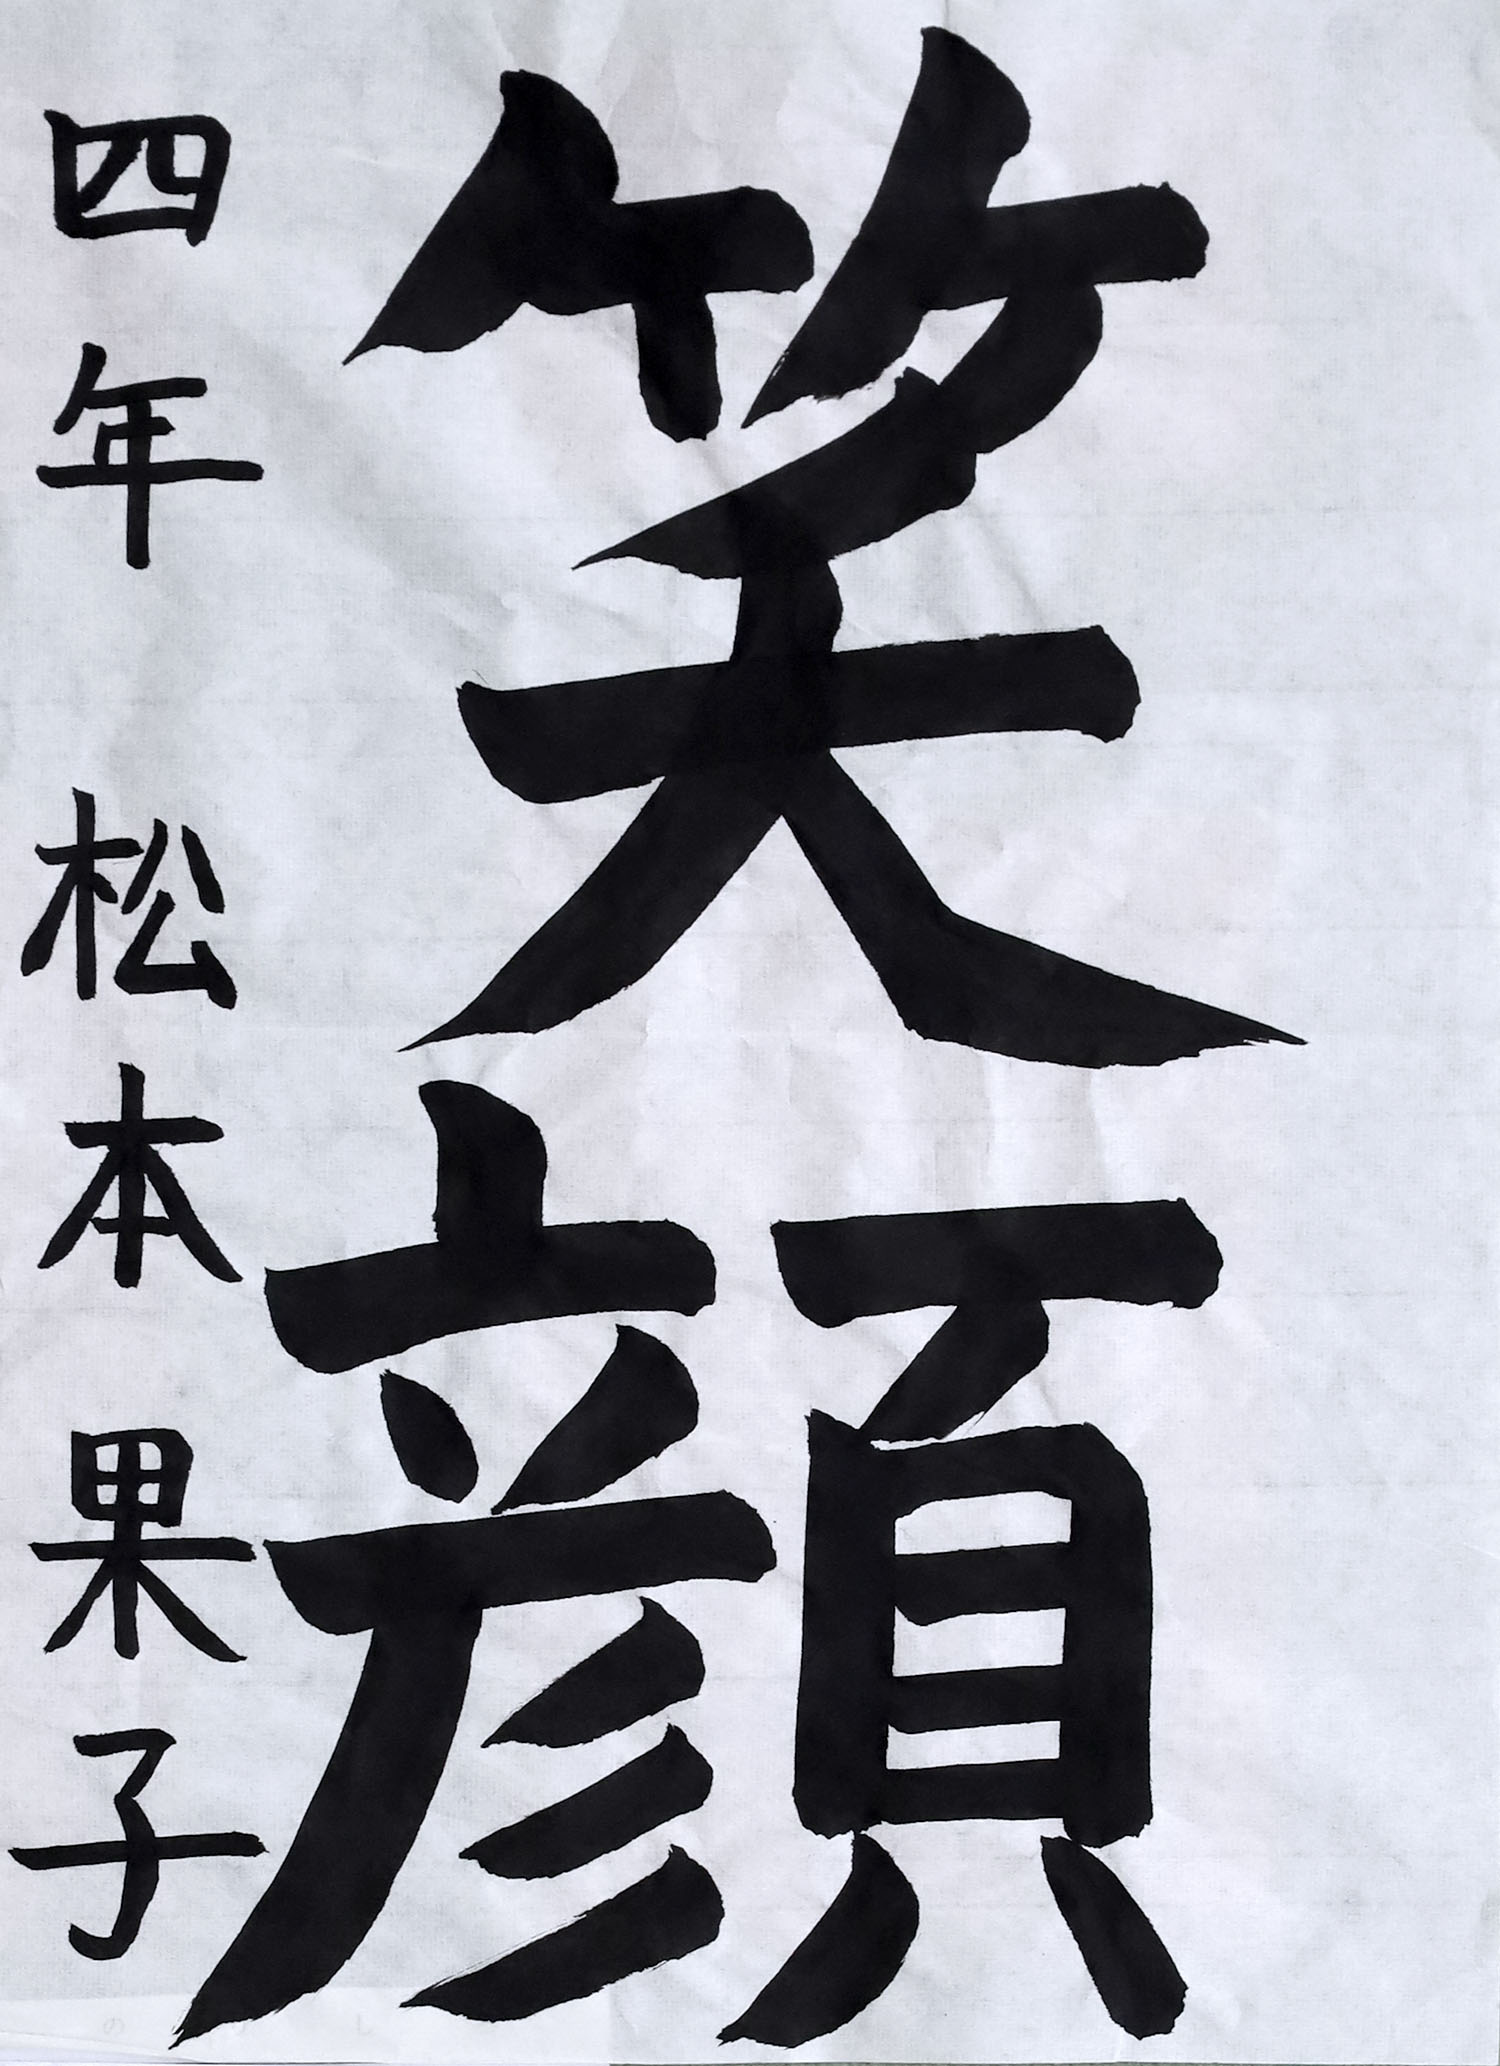 笑顔
四年 松本果子